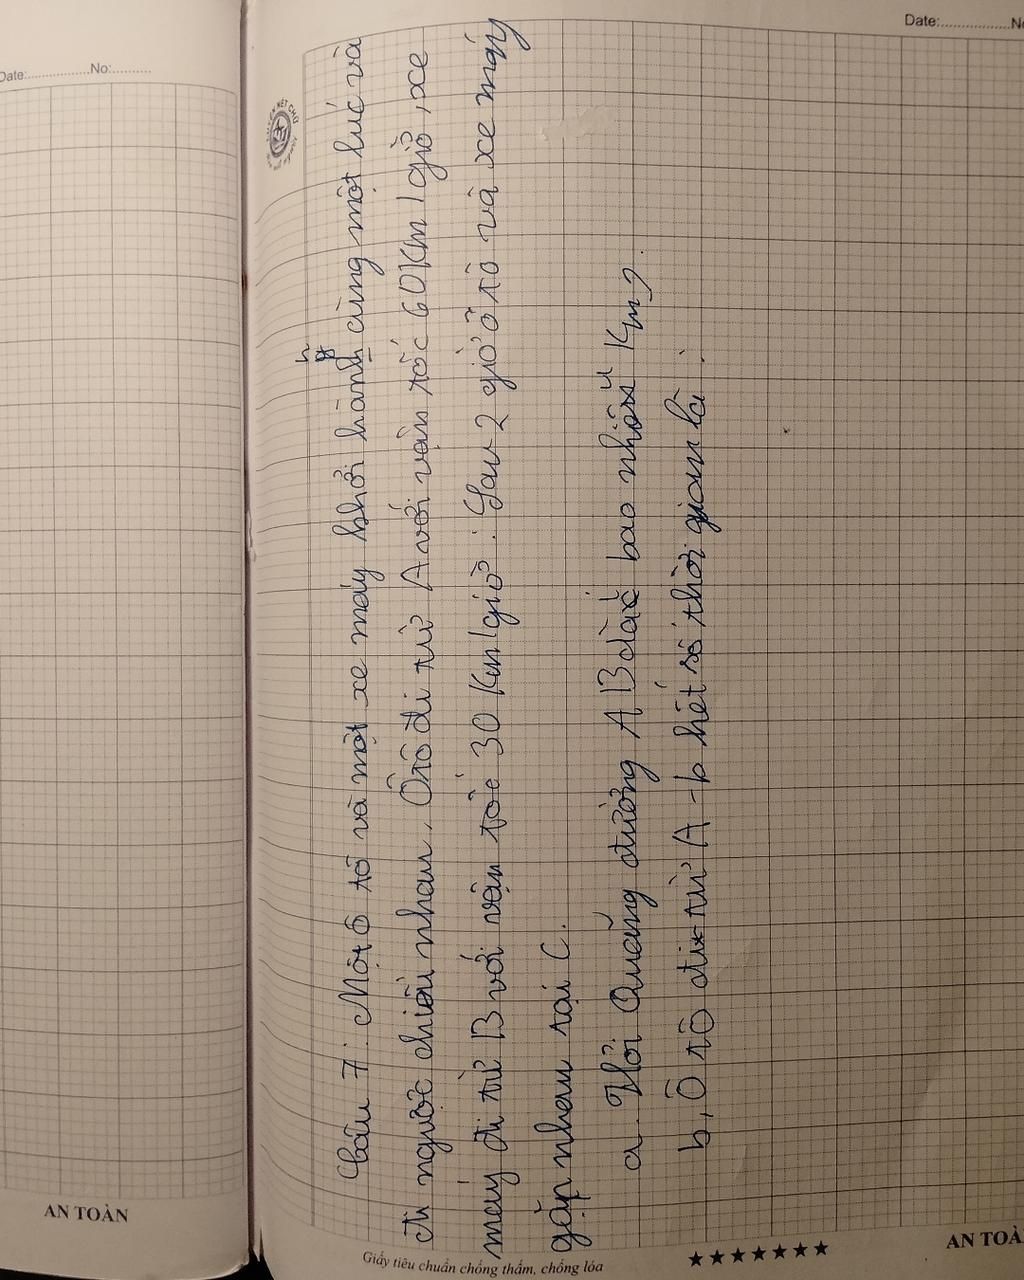 Date:................No:..........
Date:................No
Câu 7: Một ô tô và một xe máy khởi hành cùng một lúc và
đi ngược chiều nhau. Ôtô đi từ A với vận tốc 60 Km/giờ, xe
máy đi từ B với vận tốc 30 Km/giờ. Sau 2 giờ ô tô và xe máy
gặp nhau tại C.
a. Hỏi Quãng đường AB dài bao nhiêu Km?
b, Ô tô đi từ A - b hết số thời gian là.
AN TOÀN
Giấy tiêu chuẩn chống thấm, chống lóa
AN TOÀ